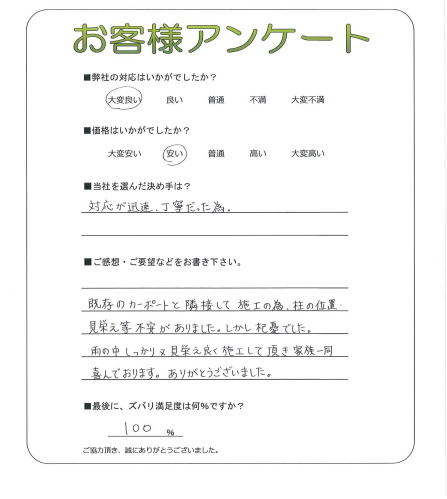 お客様アンケート
■弊社の対応はいかがでしたか？
大変良い 良い 普通 不満 大変不満
■価格はいかがでしたか？
大変安い 安い 普通 高い 大変高い
■当社を選んだ決め手は？
対応が迅速、丁寧だった為。
■ご感想・ご要望などをお書き下さい。
既存のカーポートと隣接して施工の為、柱の位置・
見栄え等不安がありました。しかし杞憂でした。
雨の中しっかり又見栄え良く施工して頂き家族一同
喜んでおります。ありがとうございました。
■最後に、ズバリ満足度は何%ですか？
100 %
ご協力頂き、誠にありがとうございました。